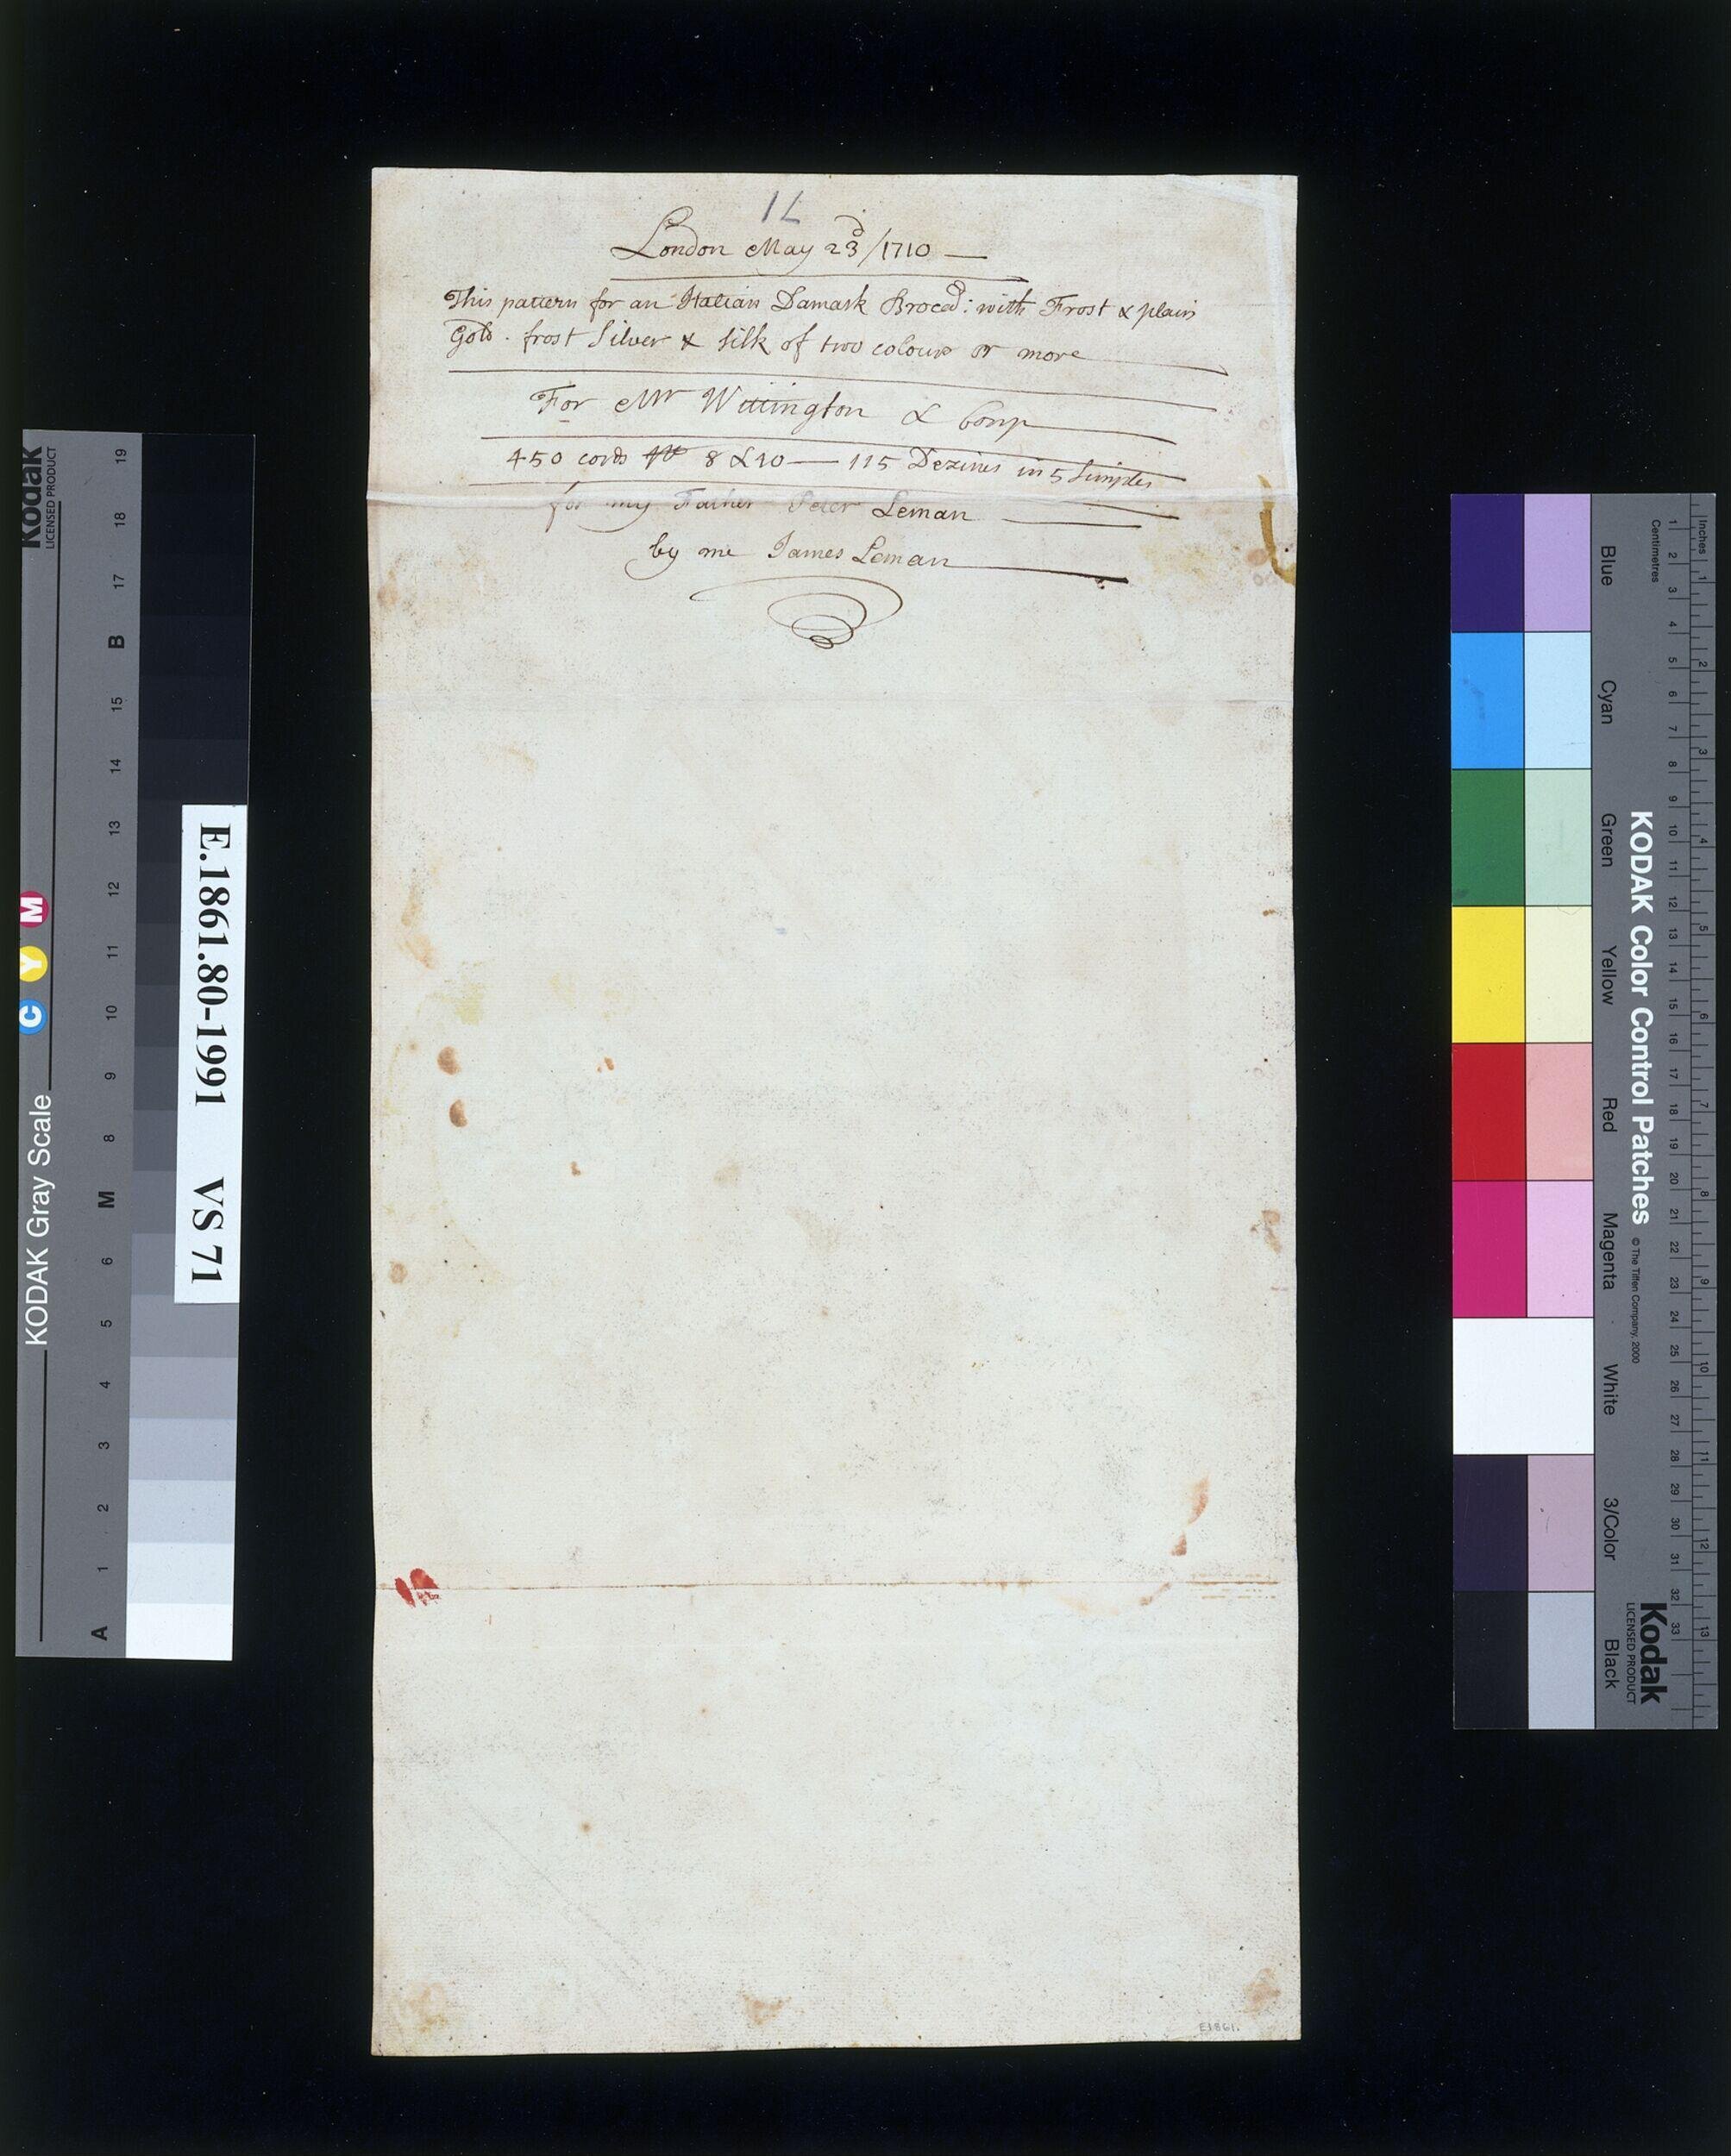 71
London May 23d/1710
This pattern for an Italian Damask Broced: with Frost & plain
Gold. frost Silver & silk of two colours or more
For Mr Wittington & Comp
450 cords 8 & 10 — 115 Dezines in 5 Simples
for my Father Peter Leman
by me James Leman
E1861.
E.1861.80-1991 VS 71
Kodak
LICENSED PRODUCT
KODAK Gray Scale
C Y M
A 1 2 3 4 5 6 M 8 9 10 11 12 13 14 15 B 17 18 19
KODAK Color Control Patches
© The Tiffen Company, 2000
Kodak
LICENSED PRODUCT
Blue Cyan Green Yellow Red Magenta White 3/Color Black
Inches 1 2 3 4 5 6 7 8 9 10 11 12 13
Centimetres 1 2 3 4 5 6 7 8 9 10 11 12 13 14 15 16 17 18 19 20 21 22 23 24 25 26 27 28 29 30 31 32 33